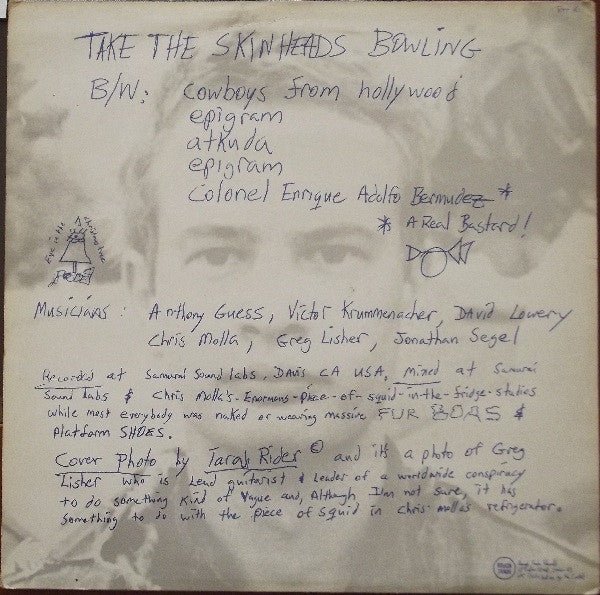 TAKE THE SKINHEADS BOWLING
B/W: cowboys from hollywood
epigram
atkuda
epigram
Colonel Enrique Adolfo Bermudez *
* A Real Bastard!
Eye in the Christmas tree
Musicians: Anthony Guess, Victor Krummenacher, David Lowery
Chris Molla, Greg Lisher, Jonathan Segel
Recorded at Samurai Sound labs, Davis CA USA, mixed at Samurai
Sound labs & Chris Molla's-Enormous-piece-of-squid-in-the-fridge-studios
while most everybody was naked or wearing massive FUR BOAS &
Platform SHOES.
Cover Photo by Tarah Rider © and it's a photo of Greg
Lisher who is Lead guitarist & Leader of a worldwide conspiracy
to do something kind of Vague and, Although I'm not sure, it has
Something to do with the piece of squid in Chris mollas refrigerator.
ROUGH TRADE